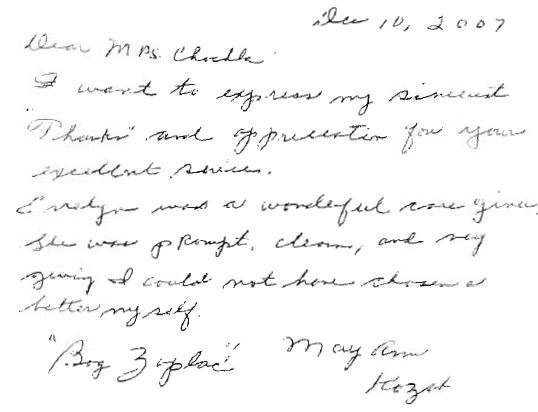 Dec 10, 2007
Dear Mrs. 
I want to express my sincerest
"Thanks" and appreciation for your
excellent service.
Evelyn was a wonderful care giver.
She was prompt, clean, and very
giving I could not have chosen a
better myself.
"Bog Zaplac" Mary Ann